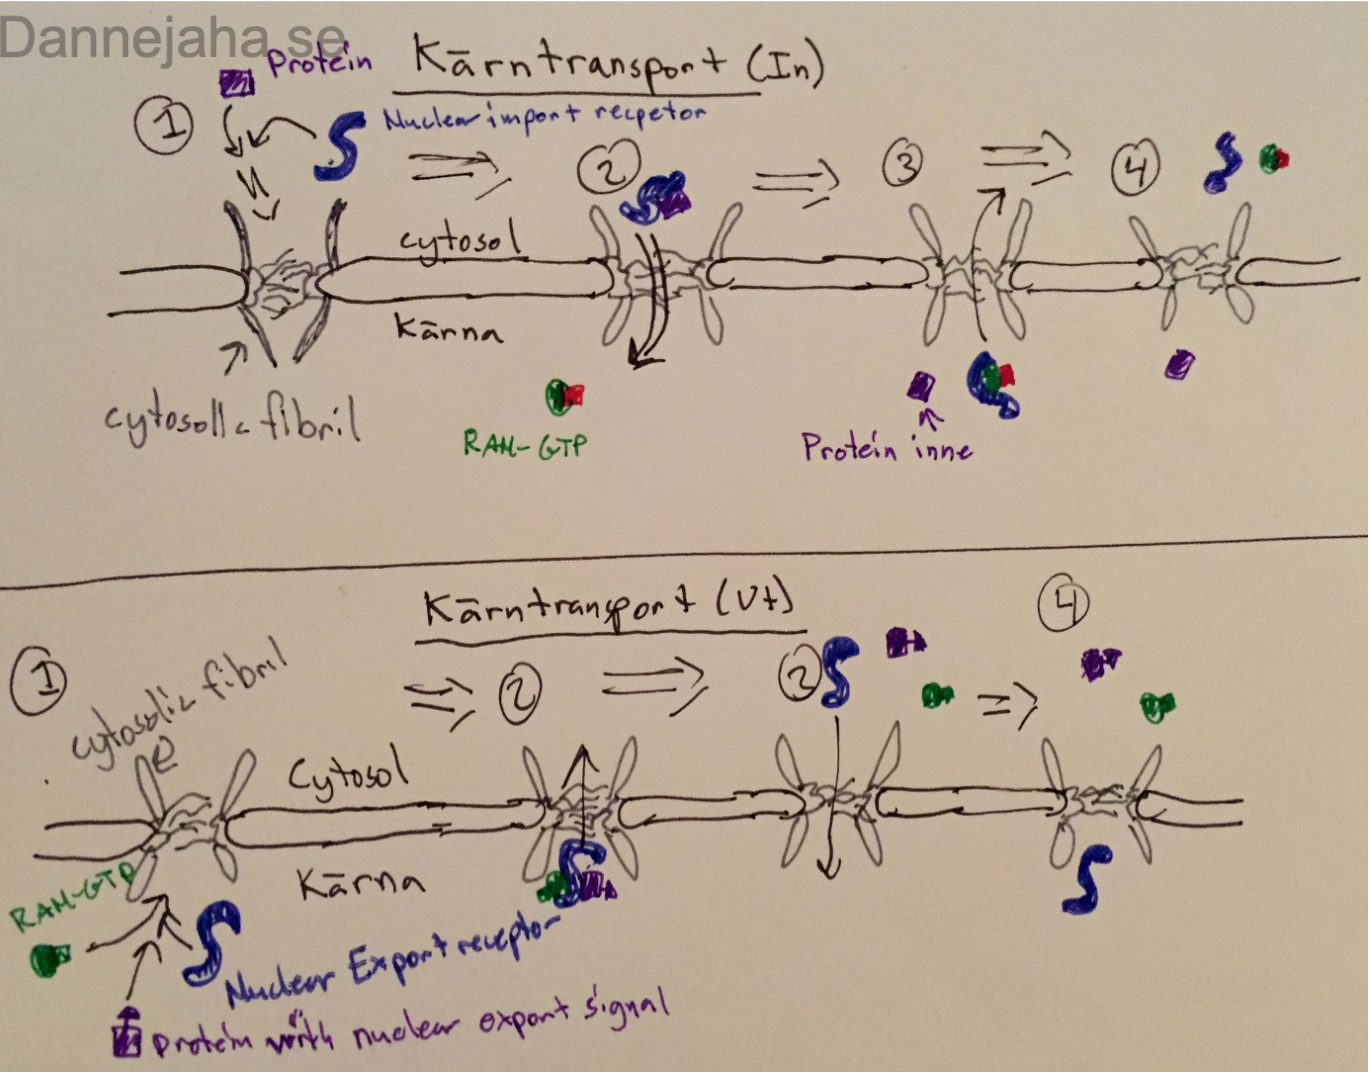 Dannejaha.se
Protein
Kärntransport (In)
1
Nuclear import recpetor
2
3
4
cytosol
Kärna
cytosolic fibril
RAN-GTP
Protein inne
Kärntransport (Ut)
4
1
cytosolic fibril
2
2
Cytosol
Kärna
RAN-GTP
Nuclear Export receptor
protein with nuclear export signal